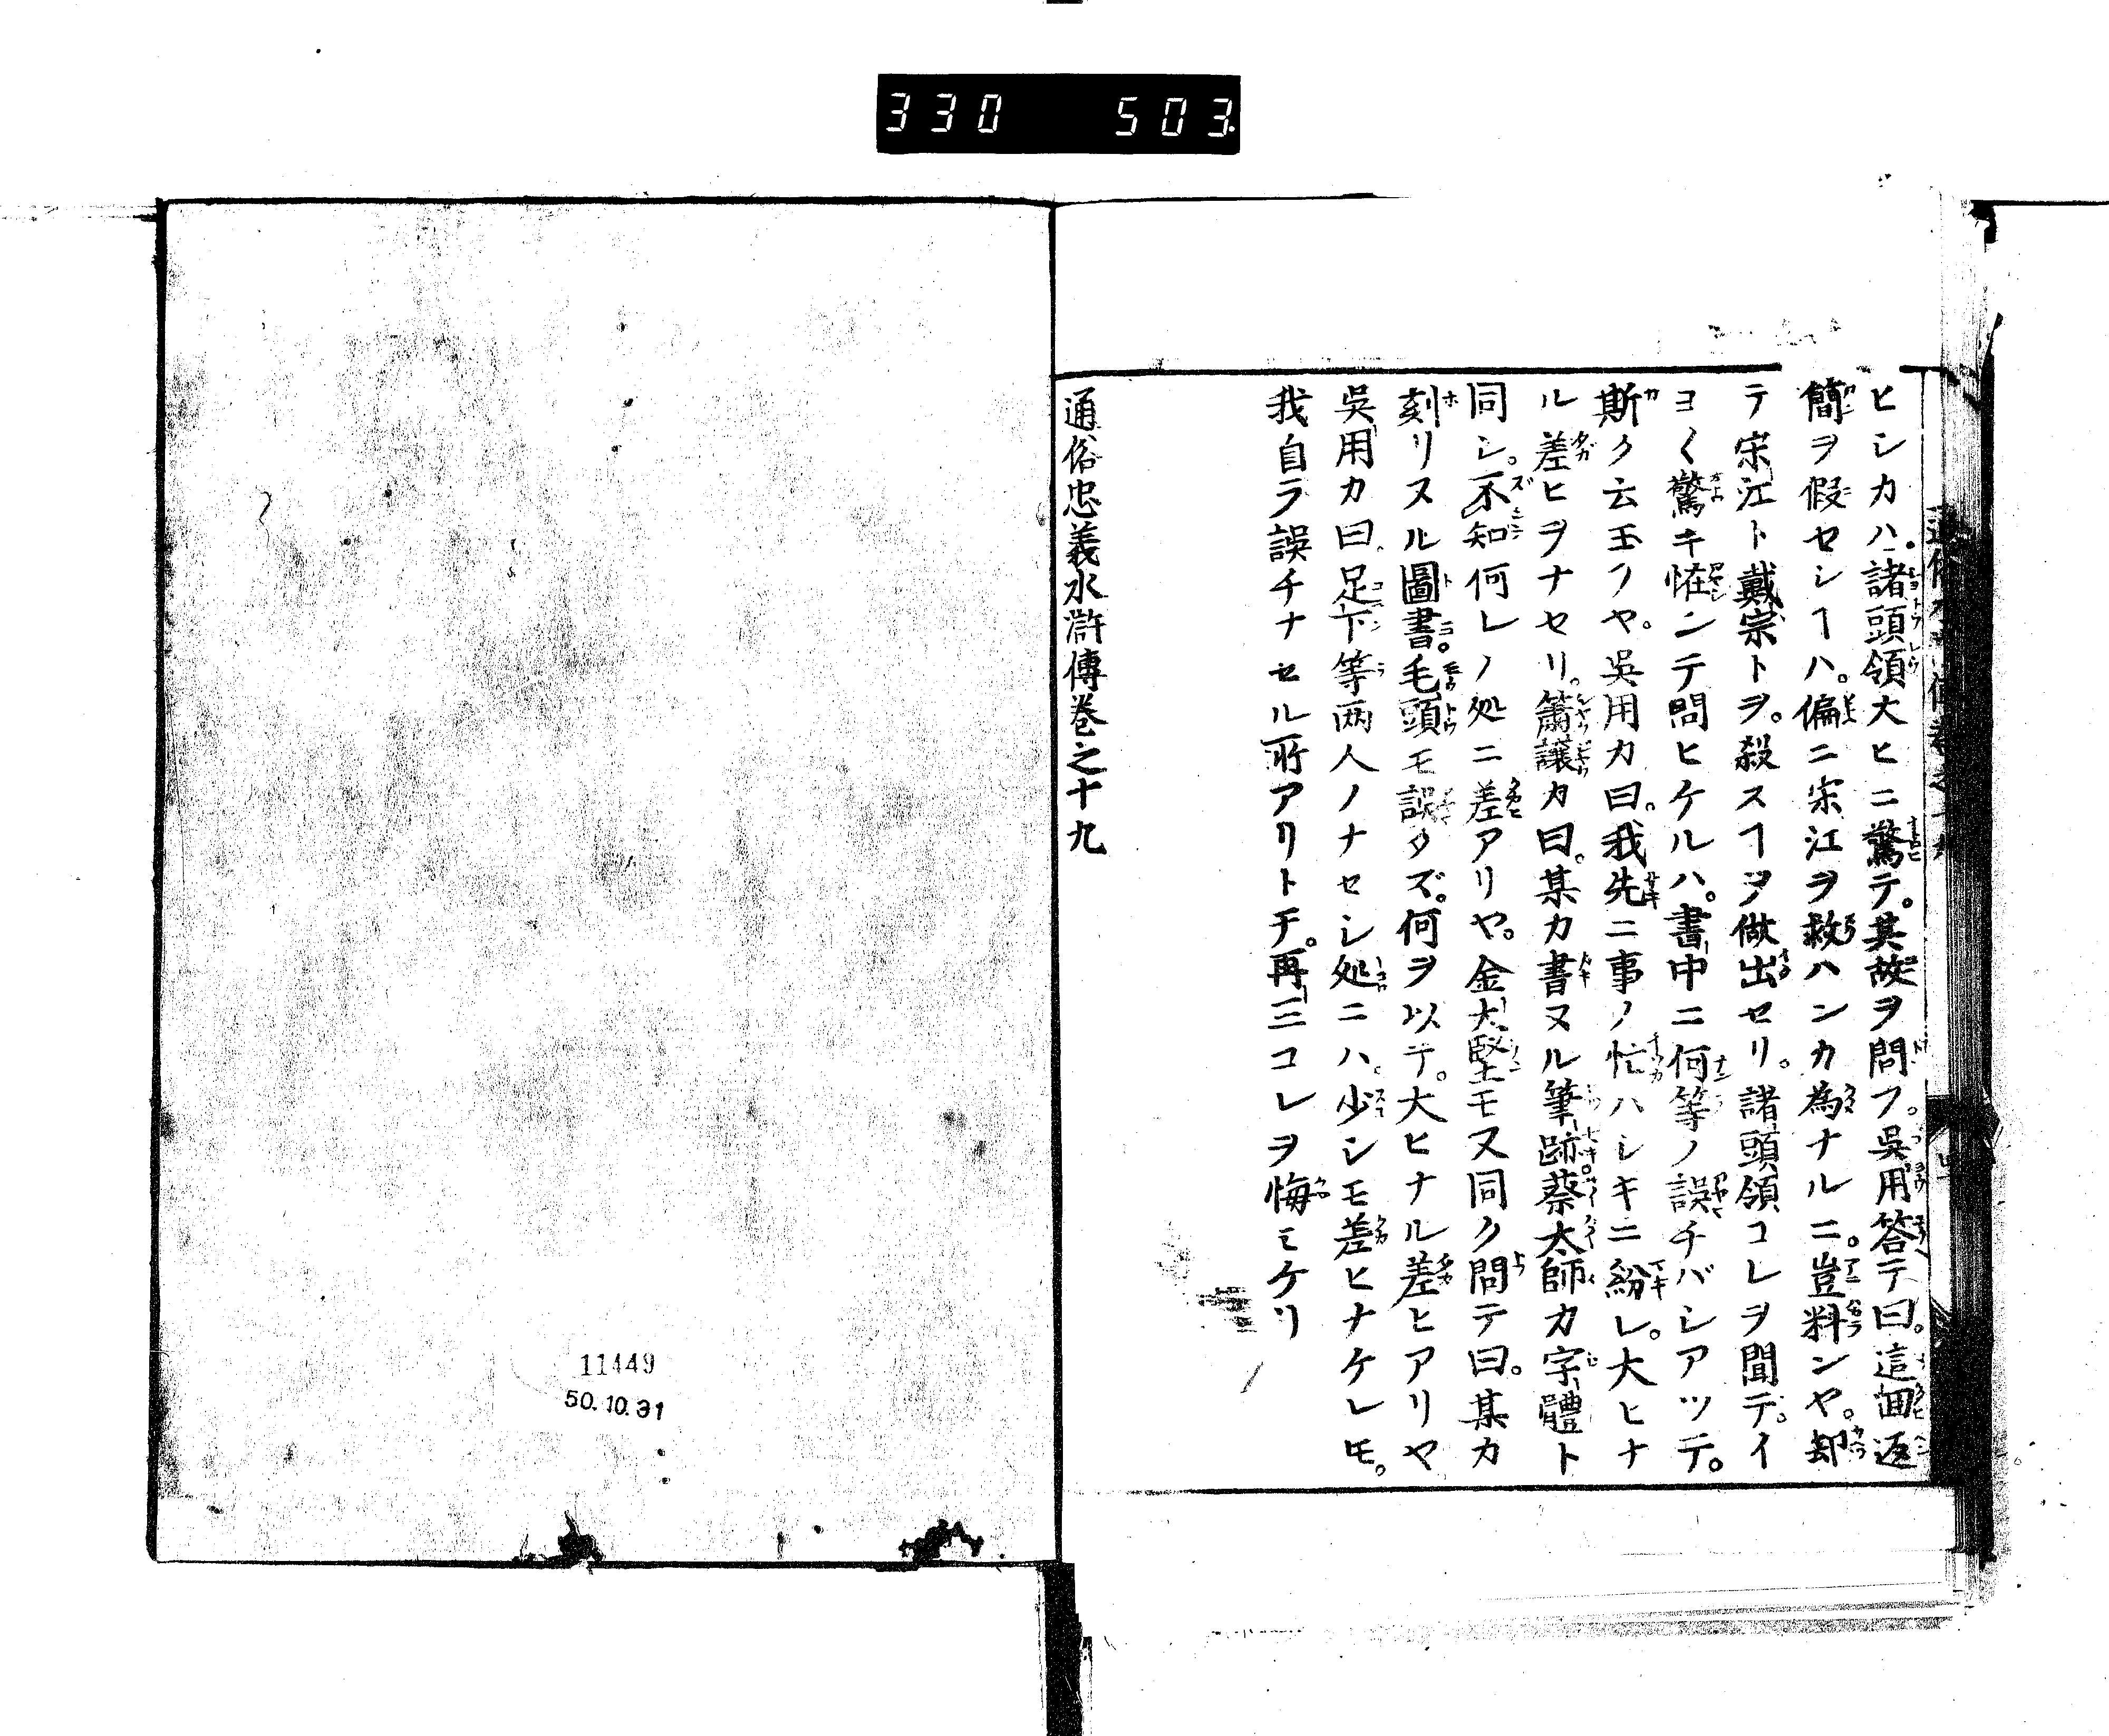 330 503.
ヒシカハ。諸頭領大ヒニ驚テ。其故ヲ問フ。吳用答テ曰。這囬返
簡ヲ假セシヿハ。偏ニ宋江ヲ救ハンカ為ナルニ。豈料ンヤ。却
テ宋江ト戴宗トヲ。殺スヿヲ做出セリ。諸頭領コレヲ聞テ。イ
ヨ〱驚キ恠ンテ問ヒケルハ。書中ニ何等ノ誤チバシアツテ。
斯ク云玉フヤ。吳用カ曰。我先ニ事ノ忙ハシキニ紛レ。大ヒナ
ル差ヒヲナセリ。簫讓カ曰。某カ書ヌル筆跡。蔡太師カ字體ト
同シ。不知何レノ処ニ差アリヤ。金大堅モ又同ク問テ曰。某カ
刻リスル圖書。毛頭モ誤タズ。何ヲ以テ。大ヒナル差ヒアリヤ
吳用カ曰。足下等两人ノナセシ処ニハ。少シモ差ヒナケレ𪜈。
我自ラ誤チナセル所アリトテ。再三コレヲ悔ミケリ
通俗忠義水滸傳巻之十九
11449
50.10.31